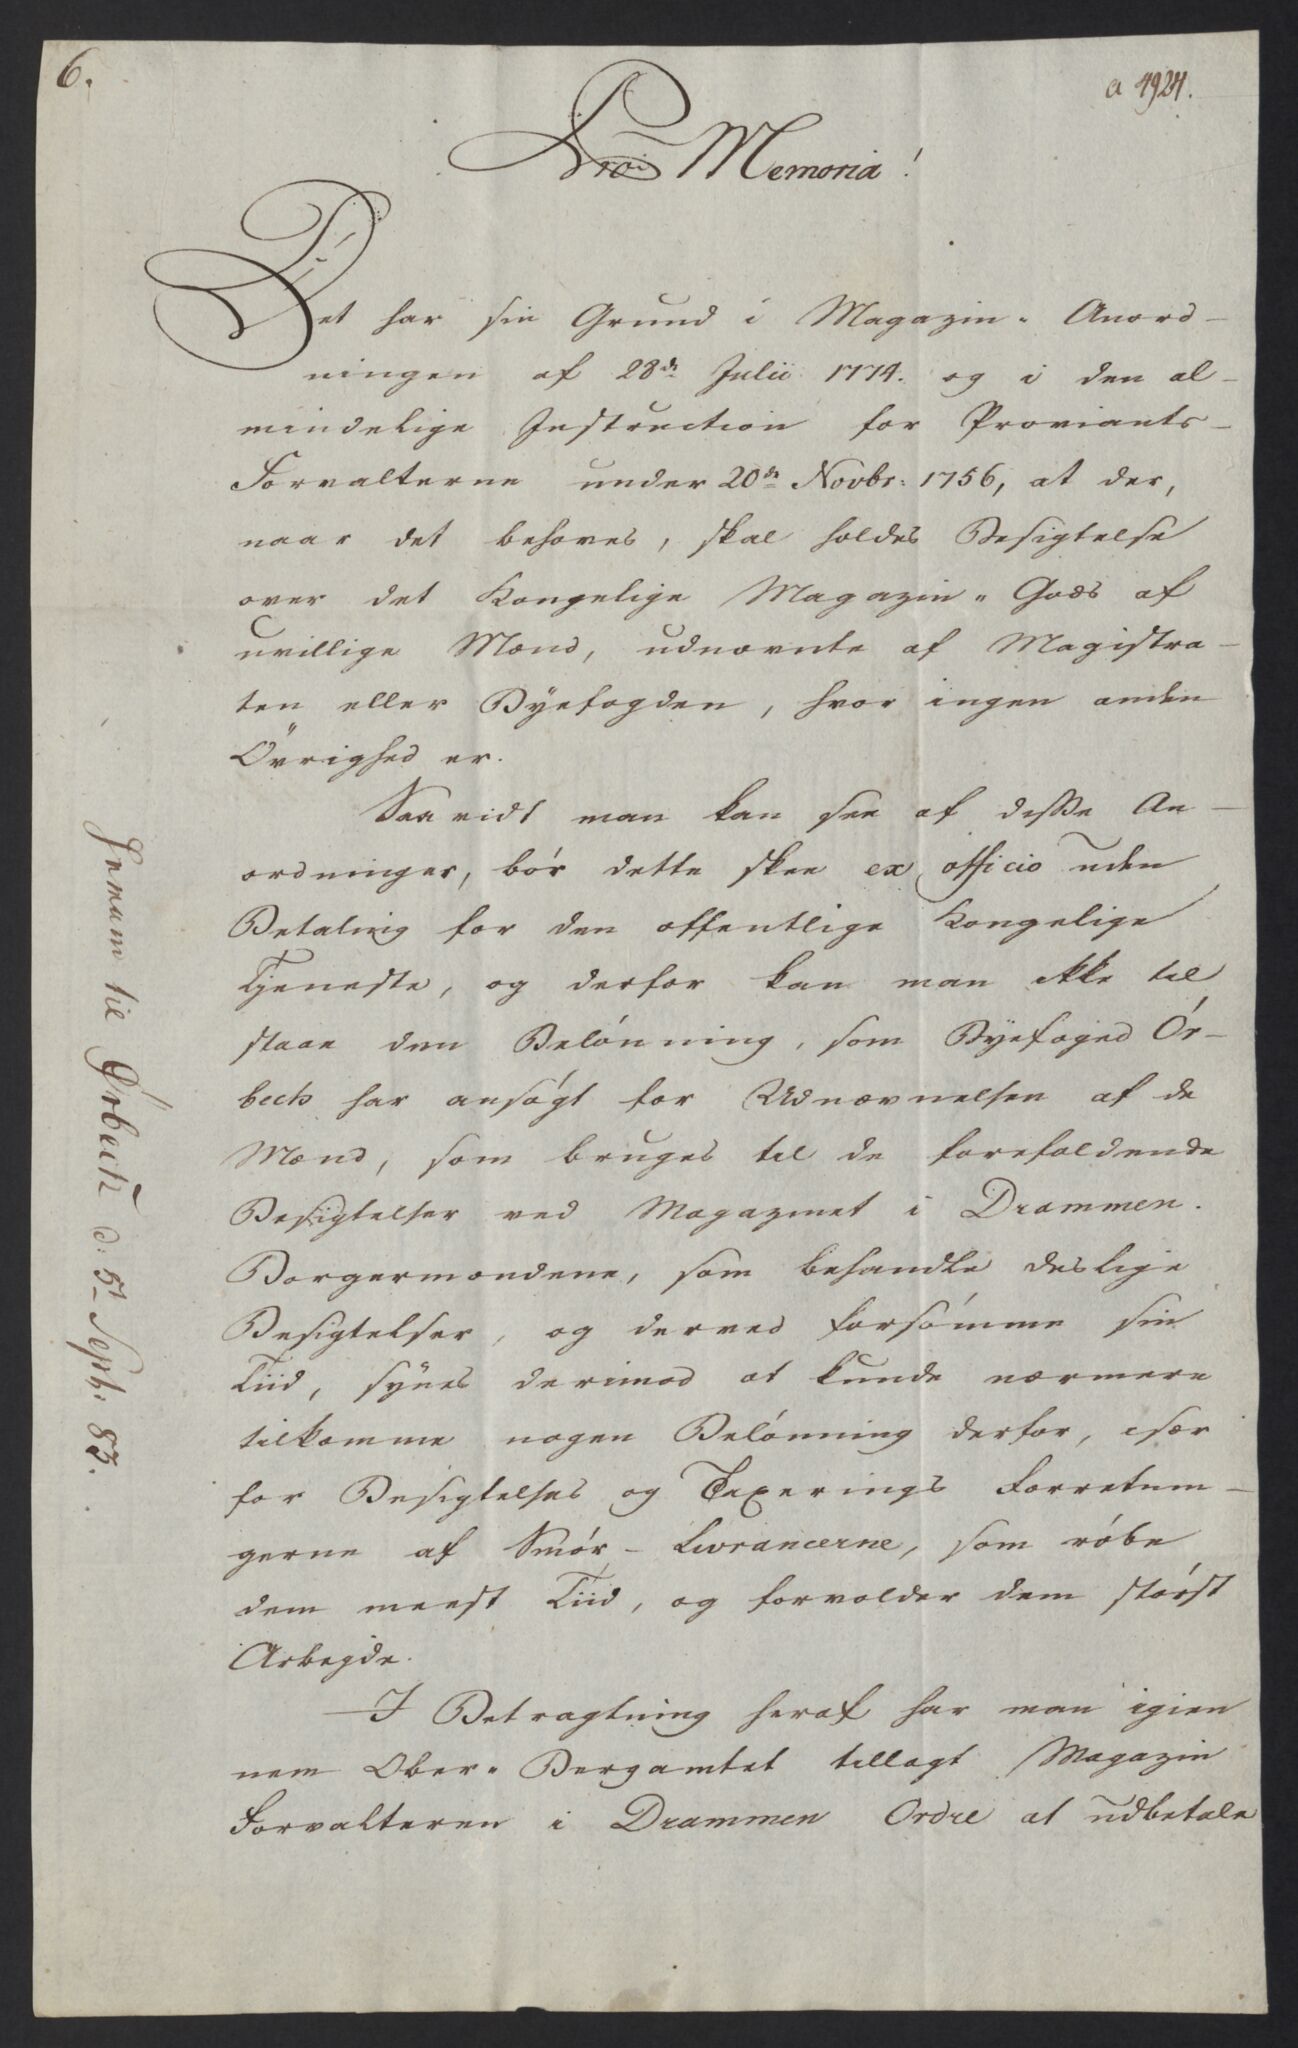 6.
a 4924.
Pro Memoria!
Det har sin Grund i Magazin-Anord-
ningen af 28de Julii 1774. og i den al-
mindelige Instruction for Proviants-
Forvalterne under 20de Novbr: 1756, at der,
naar det behøves, skal holdes Besigtelse
over det Kongelige Magazin-Gods af
uvillige Mænd, udnævnte af Magistra-
ten eller Byefogden, hvor ingen anden
Övrighed er.
Saavidt man kan see af disse An-
ordninger, bør dette skee ex officio uden
Betaling for den offentlige Kongelige
Tjeneste, og derfor kan man ikke til
staae den Belønning, som Byefoged Ør-
bech har ansøgt for Udnævnelsen af de
Mænd, som bruges til de forefaldende
Besigtelser ved Magazinet i Drammen.
Borgermændene, som behandle deslige
Besigtelser, og derved forsømme sin
Tiid, synes derimod at kunde nærmere
tilkomme nogen Belønning derfor, især
for Besigtelses og Taxerings Forretnin-
gerne af Smør-Livrancerne, som røbe
dem meest Tiid, og forvolder dem størst
Arbejde.
I Betragtning heraf har man igien
nem Ober-Bergamtet tillagt Magazin
Forvalteren i Drammen Ordre at udbetale
til Ørbech d: 5 Sept: 83.